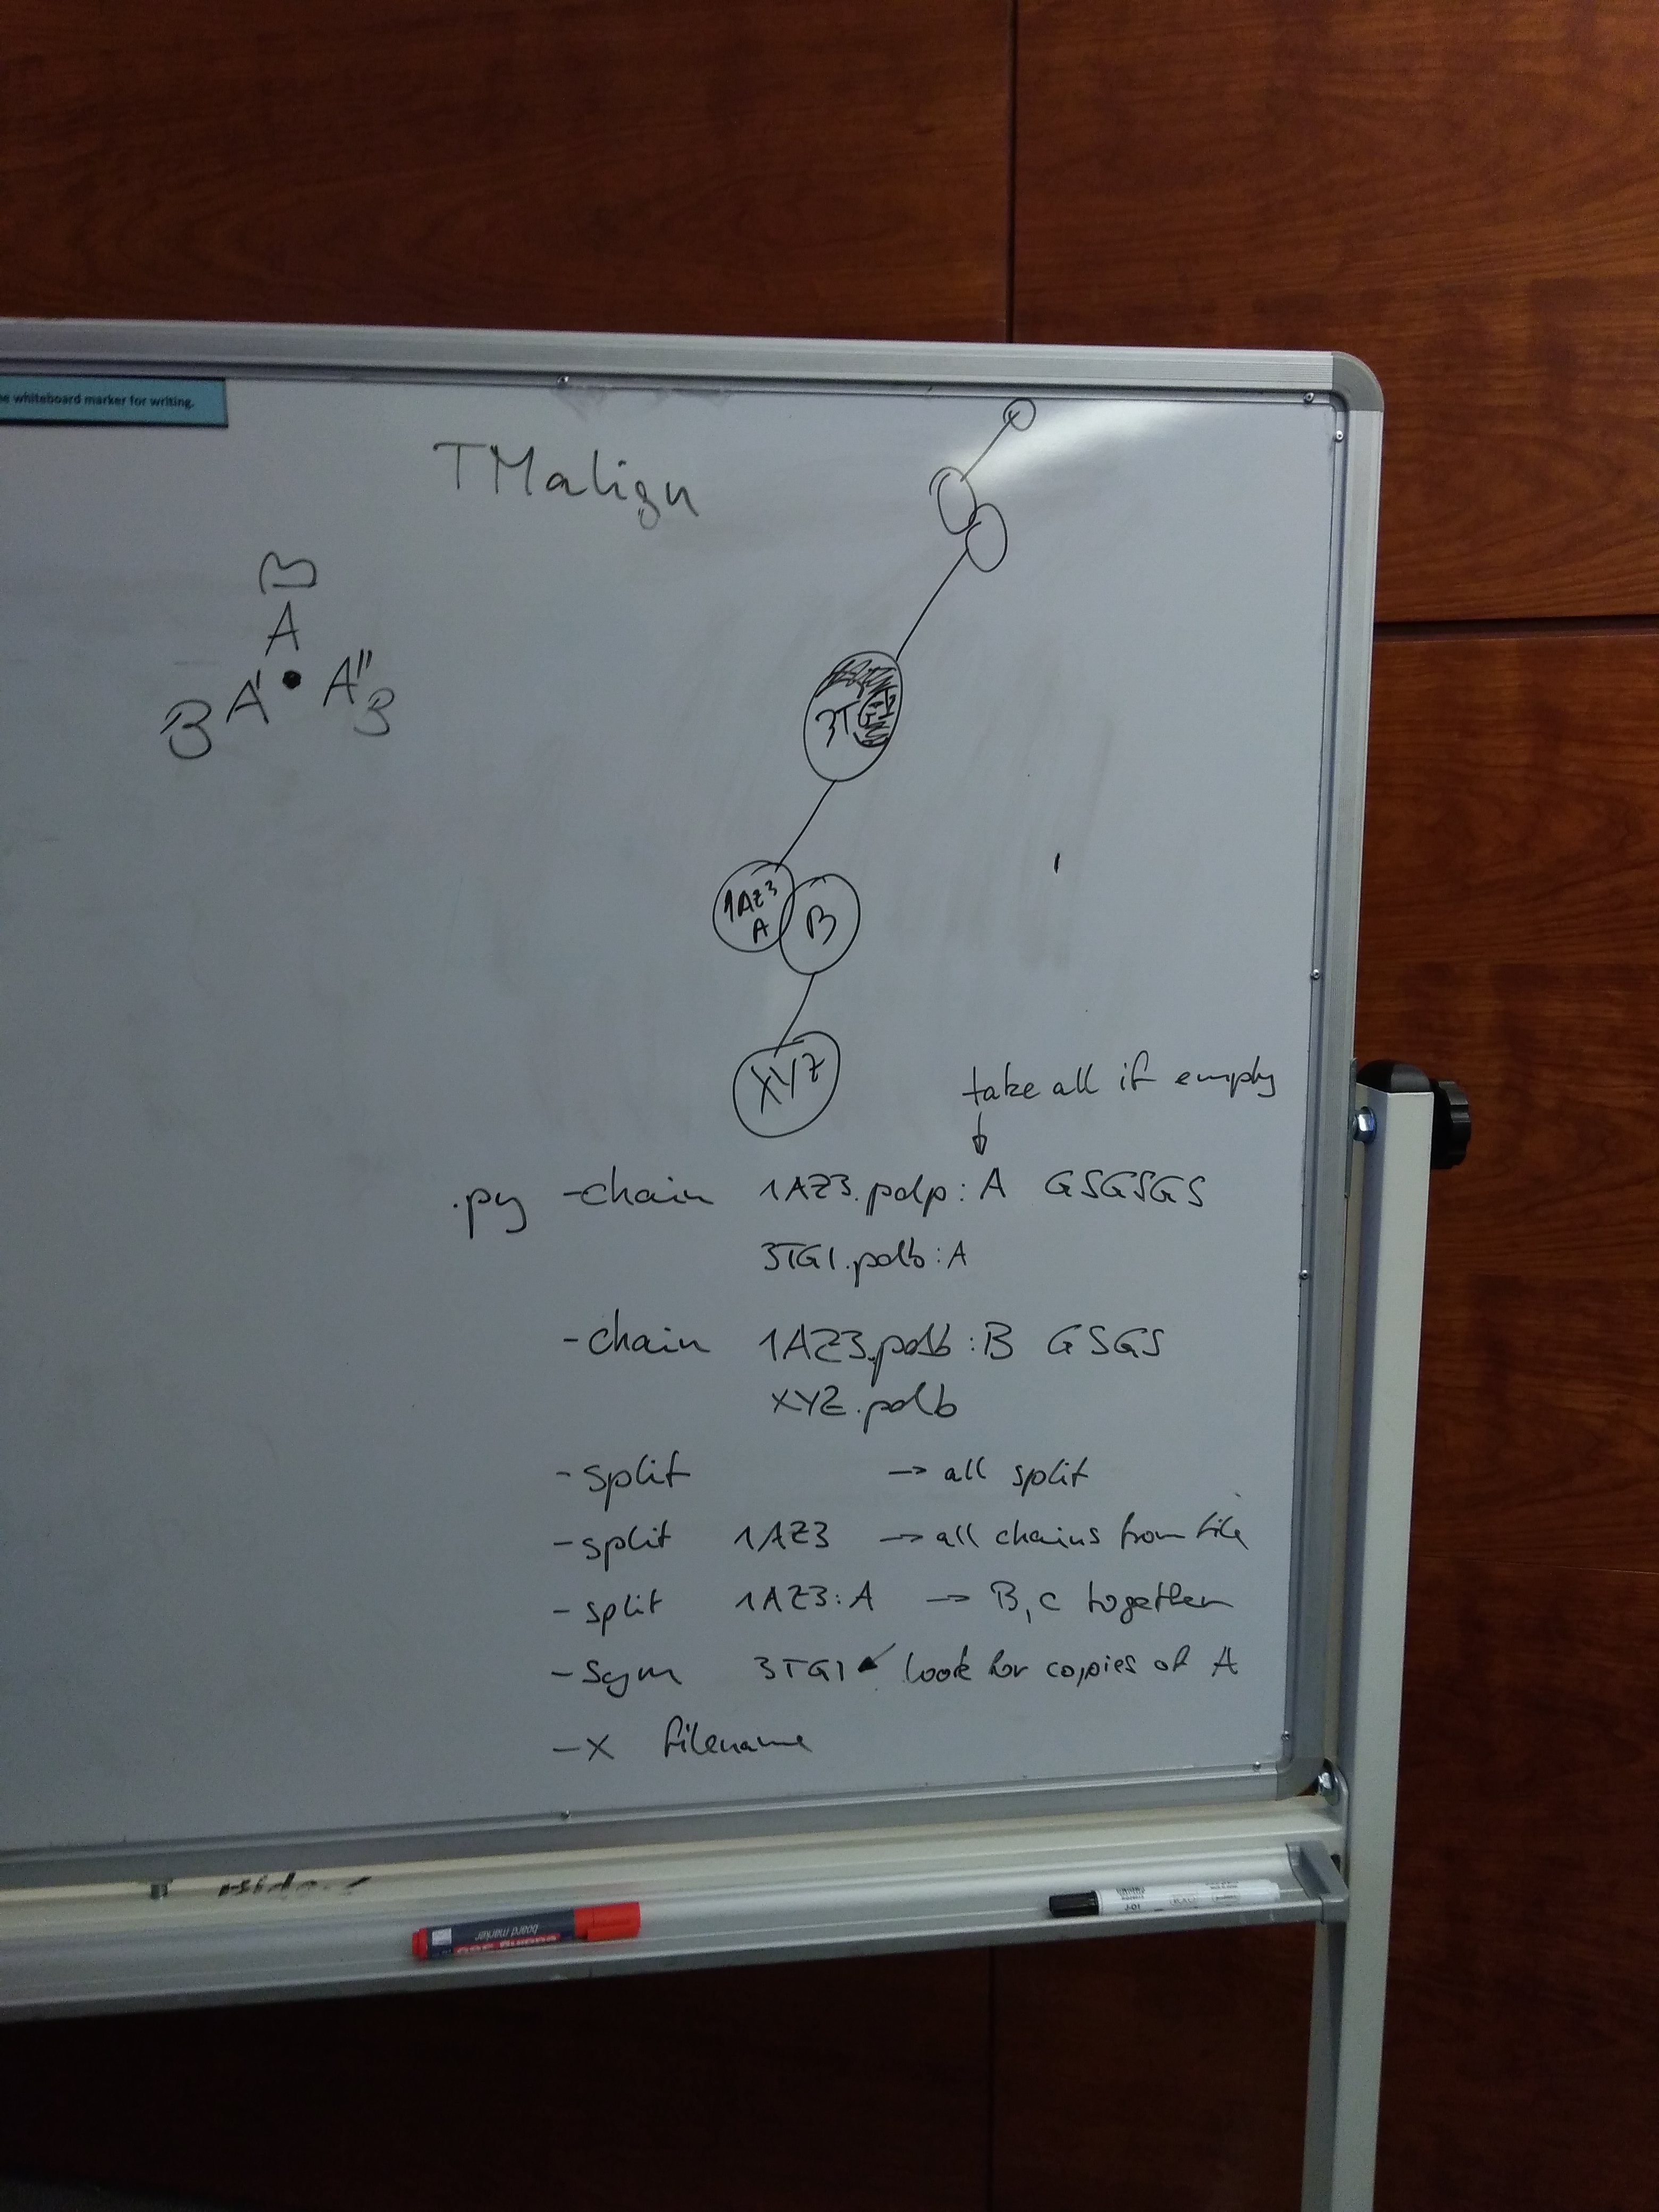 e whiteboard marker for writing.
TMalign
B
A
B A' • A'' B
3TG1
1AZ3
A
B
XYZ
take all if empty
↓
.py -chain 1AZ3.pdp:A GSGSGS
3TG1.pdb:A
-chain 1AZ3.pdb:B GSGS
XYZ.pdb
-split → all split
-split 1AZ3 → all chains from file
-split 1AZ3:A → B,C together
-sym 3TG1 ↙ look for copies of A
-x filename
board marker